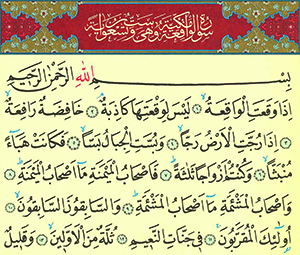 سورة الواقعة مكية وهي ست وتسعون آية
بِسْمِ اللهِ الرَّحْمٰنِ الرَّحِيمِ
اِذَا وَقَعَتِ الْوَاقِعَةُۙ ﴿١﴾ لَيْسَ لِوَقْعَتِهَا كَاذِبَةٌۢ ﴿٢﴾ خَافِضَةٌ رَافِعَةٌۙ
﴿٣﴾ اِذَا رُجَّتِ الْاَرْضُ رَجًّاۙ ﴿٤﴾ وَبُسَّتِ الْجِبَالُ بَسًّاۙ ﴿٥﴾ فَكَانَتْ هَبَٓاءً
مُنْبَثًّاۙ ﴿٦﴾ وَكُنْتُمْ اَزْوَاجًا ثَلٰثَةًۜ ﴿٧﴾ فَاَصْحَابُ الْمَيْمَنَةِ مَٓا اَصْحَابُ الْمَيْمَنَةِۜ ﴿٨﴾
وَاَصْحَابُ الْمَشْـَٔمَةِ مَٓا اَصْحَابُ الْمَشْـَٔمَةِۜ ﴿٩﴾ وَالسَّابِقُونَ السَّابِقُونَۙ ﴿١٠﴾
اُو۬لٰٓئِكَ الْمُقَرَّبُونَۚ ﴿١١﴾ فِي جَنَّاتِ النَّعِيمِ ﴿١٢﴾ ثُلَّةٌ مِنَ الْاَوَّلِينَۙ ﴿١٣﴾ وَقَلِيلٌ